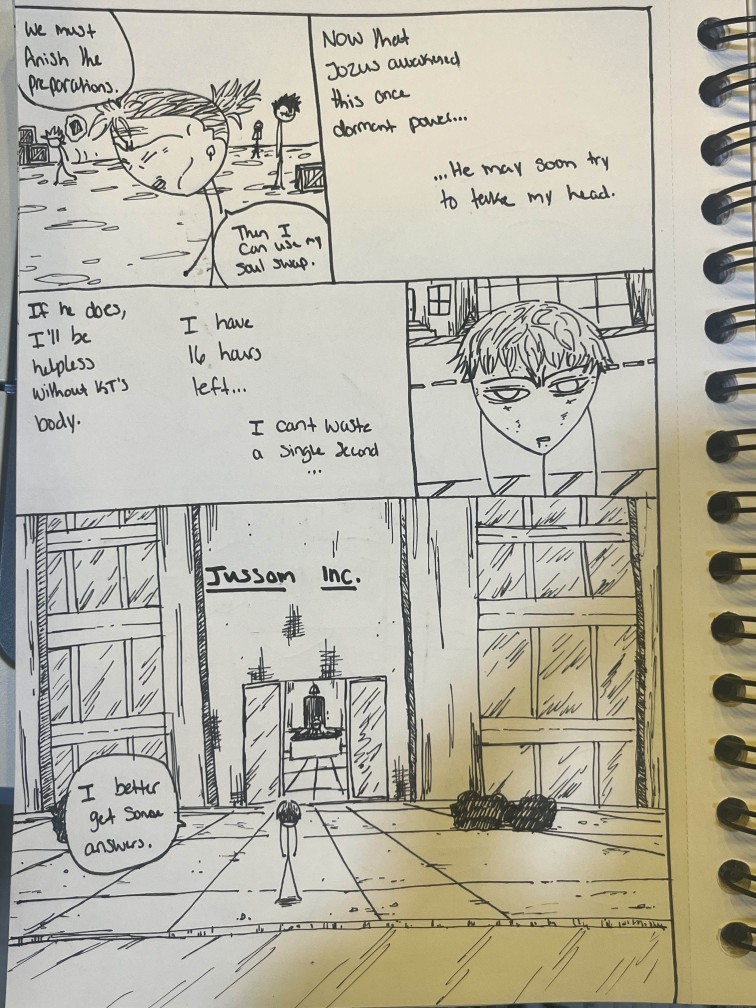 We must
finish the
preparations.
Then I
can use my
soul swap.
Now that
Jozus awakened
this once
dormant power...
...He may soon try
to take my head.
If he does,
I'll be
helpless
without KT's
body.
I have
16 hours
left...
I cant waste
a single second
...
Jussom Inc.
I better
get some
answers.